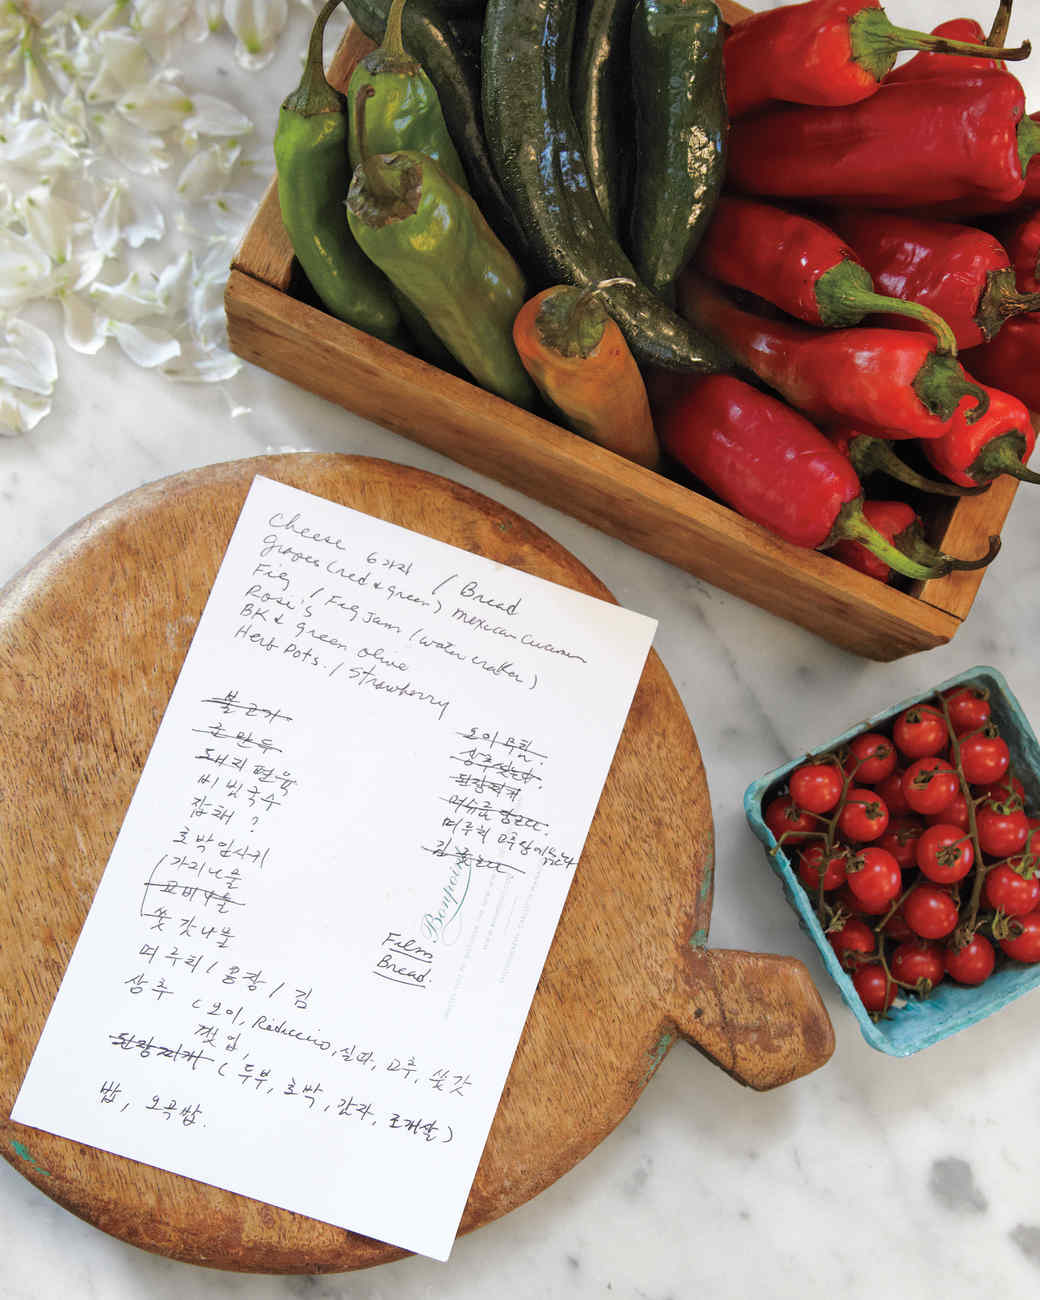 Cheese 6가지 / Bread
Grapes (red & green) mexican cucumber
Fig / Fig Jam (water cracker)
Rose's
BK & green olive
Herb Pots. / Strawberry
불고기
군만두
돼지편육
비빔국수
잡채?
호박잎사귀
(가지나물
고비나물
쑥갓나물
며루치 / 쌈장 / 김
상추 (오이, Radicchio, 실파, 고추, 쑥갓
깻잎,
된장찌개 (두부, 호박, 감자, 조개살)
밥, 오곡밥.
오이무침.
상추
된장찌개
며루치
김
Bonpoint
Film
Bread.